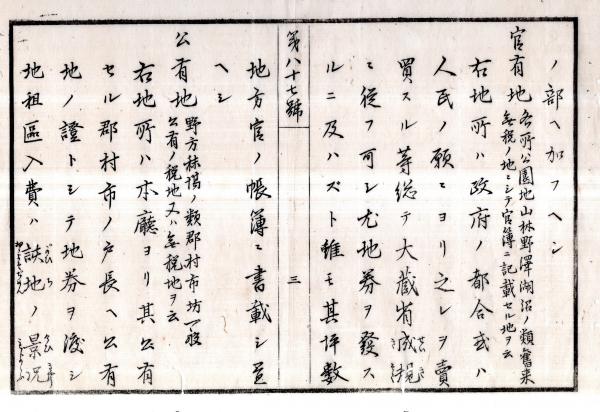 ノ部ヘ加フヘシ
官有地 名所公園地山林野澤湖沼ノ類舊来
無税ノ地ニシテ官簿ニ記載セル地ヲ云
右地所ハ政府ノ都合或ハ
人民ノ願ニヨリ之レヲ賣
買スル等総テ大蔵省成規
ニ從フ可シ尤地券ヲ發ス
ルニ及ハズト雖モ其坪數
第八十七號
三
地方官ノ帳簿ニ書載シ置
ヘシ
公有地 野方秣場ノ類郡村市坊一般
公有ノ税地又ハ無税地ヲ云
右地所ハ本廳ヨリ其公有
セル郡村市ノ戸長ヘ公有
地ノ證トシテ地券ヲ渡シ
地租區入費ハ該地ノ景況